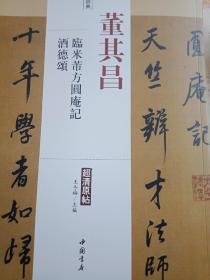 圓庵記
天竺辯才法師
十年學者如歸
董其昌
臨米芾方圓庵記
酒德頌
超清原帖
王冬梅/主編
中國書店